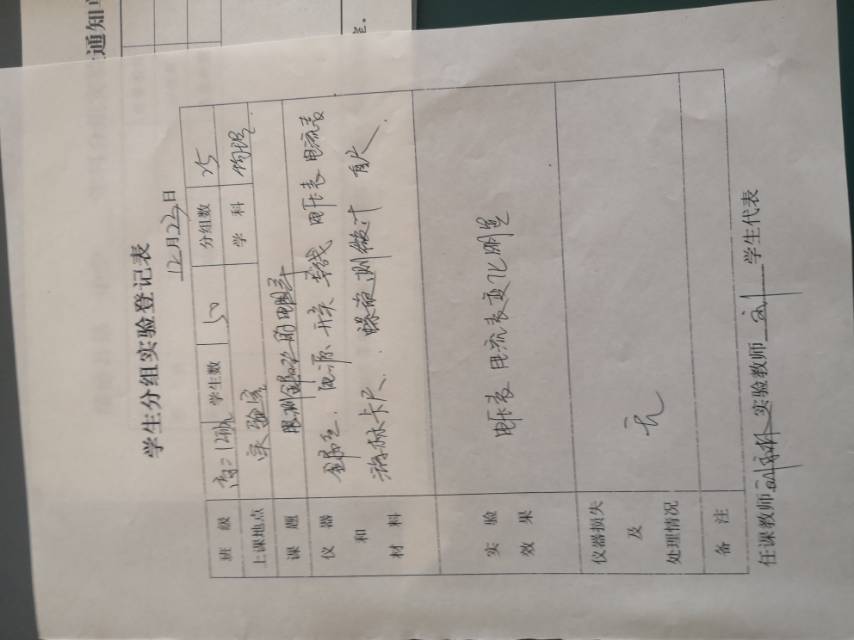 通知单
学生分组实验登记表
12月23日
班级 高二12班 学生数 50 分组数 25
上课地点 实验室 学科 物理
课题 测金属丝的电阻率
仪器和材料 金属丝. 电源. 开关 导线 电压表 电流表
游标卡尺. 螺旋测微计 直尺.
实验效果 电压表 电流表变化明显
仪器损失及处理情况 无
备注
任课教师 实验教师 学生代表